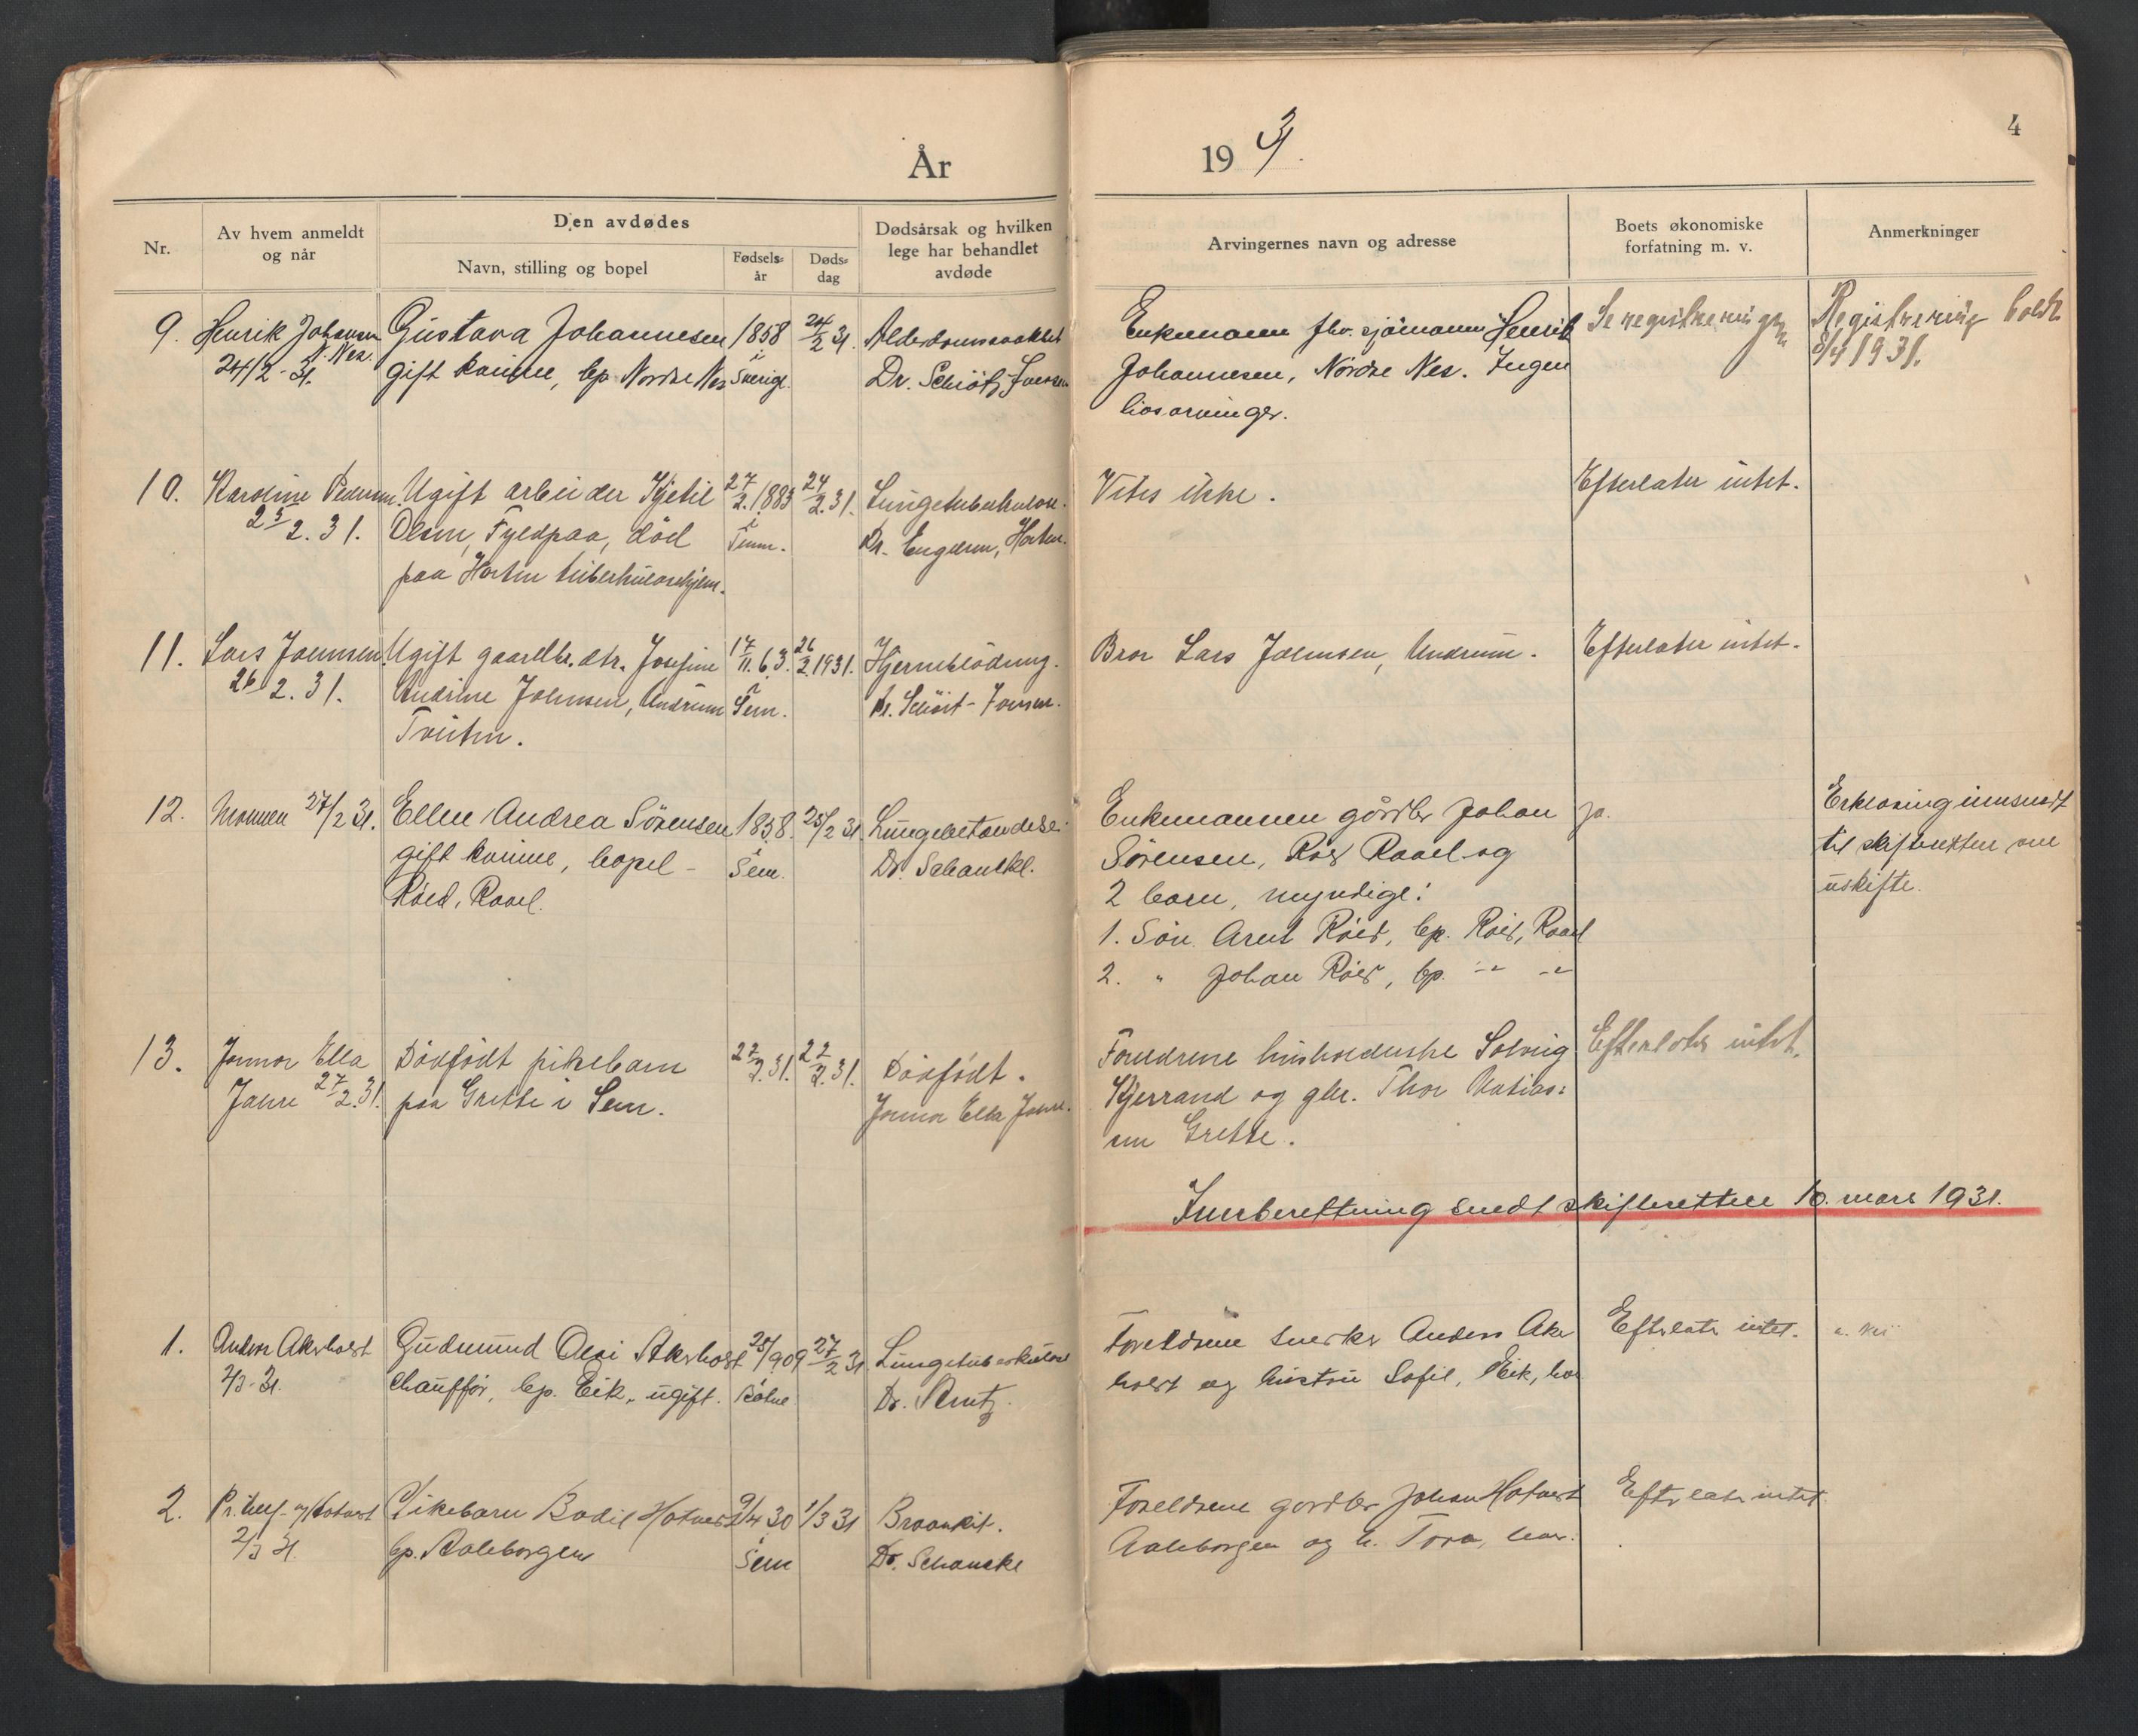 År 1931.
4
Nr.
Av hvem anmeldt
og når
Den avdødes
Navn, stilling og bopel
Fødsels-
år
Døds-
dag
Dødsårsak og hvilken
lege har behandlet
avdøde
Arvingernes navn og adresse
Boets økonomiske
forfatning m. v.
Anmerkninger
9.
Henrik Johansen
N. Nes.
24/2-31.
Gustava Johannesen
gift kvinne, bp. Nordre Nes
1858
i
Sverige.
24/2 31.
Alderdomssvakhet
Dr. Schiøtz
Enkemann fhv. sjømann Henrik
Johannesen, Nordre Nes. Ingen
livsarvinger.
Se registreringen
Registrering holdt
8/4 1931.
10.
Karoline Pedersen.
25/2.31.
Ugift arbeider Kjetil
Olsen, Fyldpaa, død
paa Horten tuberkulosehjem.
27/2.1883
i
24/2.31.
Lungetuberkulose.
Dr. Engelsen, Horten.
Vites ikke.
Efterlater intet.
11.
Lars Johnsen
26/2.31.
Ugift gaardbr. dtr. Josefine
Andrine Johnsen, Undrum
17/11.63.
i
Sem.
26/2.1931.
Hjerneblødning.
Bror Lars Johnsen, Undrum.
Efterlater intet.
12.
Mannen 27/2 31.
Ellen Andrea Sörensen
gift kvinne, bopel -
Röed, Raael.
1858.
i
Sem.
25/2 31.
Lungebetændelse.
Dr. Schanckl.
Enkemannen gårdbr Johan
Sörensen, Röed Raael og
2 barn, myndige:
1. Sön Arnt Röed, bp. Röed, Raael
2. " Johan Röed, bp. -"- -"-
Ja.
Erklæring innsendt
til skifteretten om
uskifte.
13.
Jormor Ella
Jahre 27/2.31.
Dødfødt pikebarn
paa Grette i Sem.
22/2.31.
22/2.31.
Dødfødt.
Jormor Ella Jahre.
Foreldrene husholderske Solveig
Kjerrand og gbr. Thor Matias-
sen Grette.
Efterlater intet.
Innberetning sendt skifteretten 10. mars 1931.
1.
Anders Akerholt
2/3-31.
Gudmund Akerholt
Chauffør, bp. Eik, ugift.
27/2 31
Lungetuberkulose
Dr. Arntz.
Foreldrene snekker Anders Aker
holt og hustru Sofie, Eik, her
Efterlater intet.
2.
2/3 31.
Pikebarn Bodil Hotvedt
bp. Aaleborgen
9/4 30
i
Sem
1/3 31
Bronkit.
Dr. Schancke
Foreldrene gårdbr Johan Hotvedt
Aaleborgen og h. Tora, her.
Efterlater intet.